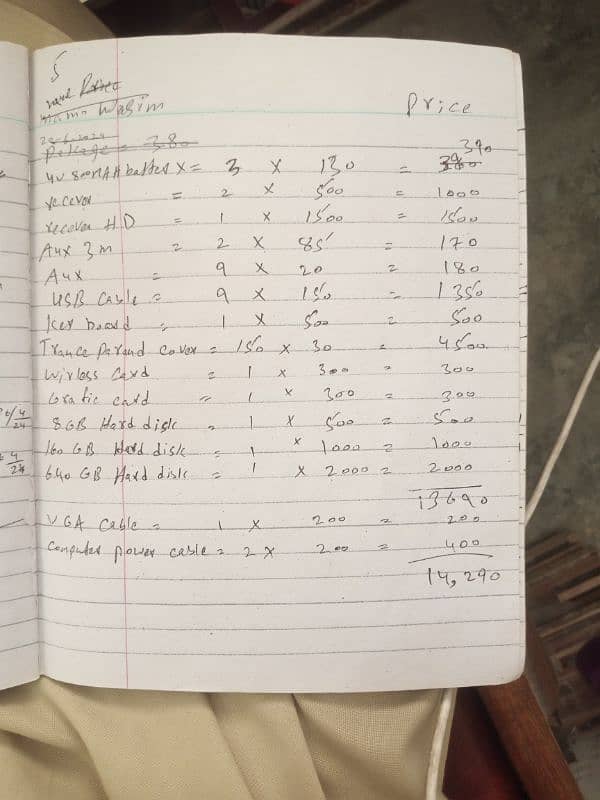 5
Wasim
Price
Package = 380
390
4V 800mAH batter X = 3 X 130 = 380
recever = 2 X 500 = 1000
recever HD = 1 X 1500 = 1500
Aux 3m = 2 X 85 = 170
Aux = 9 X 20 = 180
USB Cable = 9 X 150 = 1350
Key board = 1 X 500 = 500
Trance Parand cover = 150 X 30 = 4500
Wirless Card = 1 X 300 = 300
Grafic card = 1 X 300 = 300
8 GB Hard disk = 1 X 500 = 500
160 GB Hard disk = 1 X 1000 = 1000
640 GB Hard disk = 1 X 2000 = 2000
13690
VGA Cable = 1 X 200 = 200
Computer power cable = 2 X 200 = 400
14,290
4/24